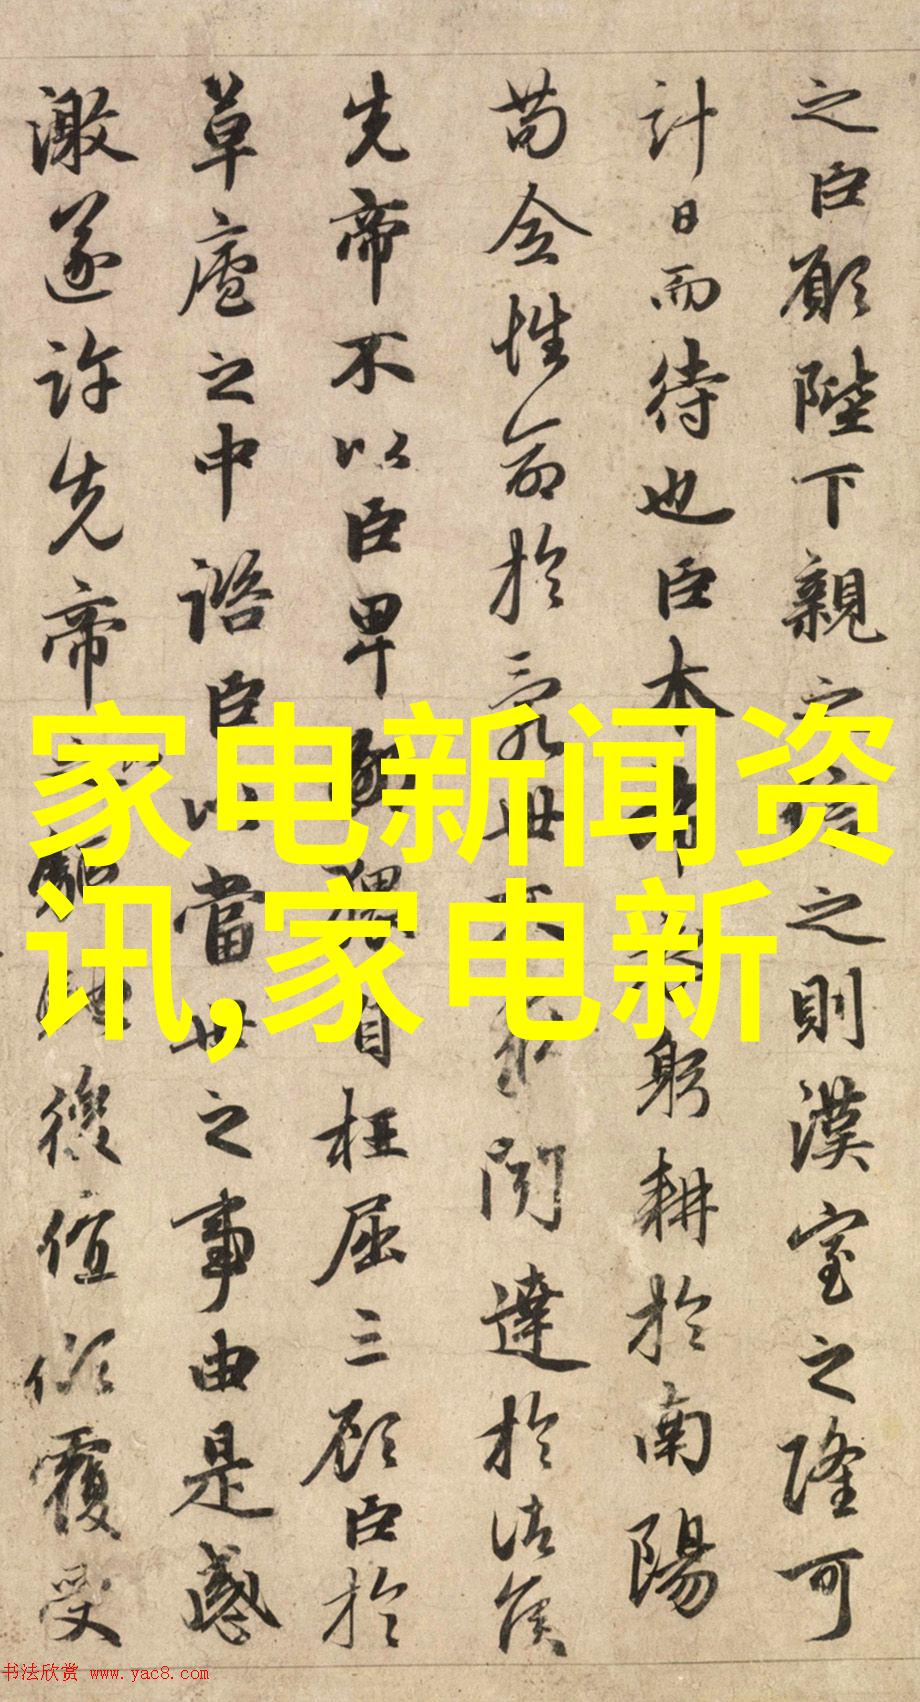 之臣願陛下親之信之則漢室之隆可
計日而待也臣本布衣躬耕於南陽
苟全性命於亂世不求聞達於諸侯
先帝不以臣卑鄙猥自枉屈三顧臣於
草廬之中諮臣以當世之事由是感
激遂許先帝以驅馳後值傾覆受
家电新闻资
讯,家电新
书法欣赏 www.yac8.com